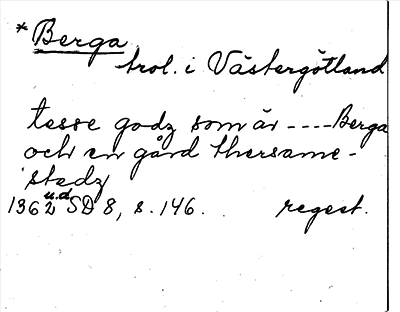 * Berga
trol. i Västergötland
tesse godz som är ---- Berga
och en gård thersame-
stadz
1362 u.d. SD 8, s. 146. regest.